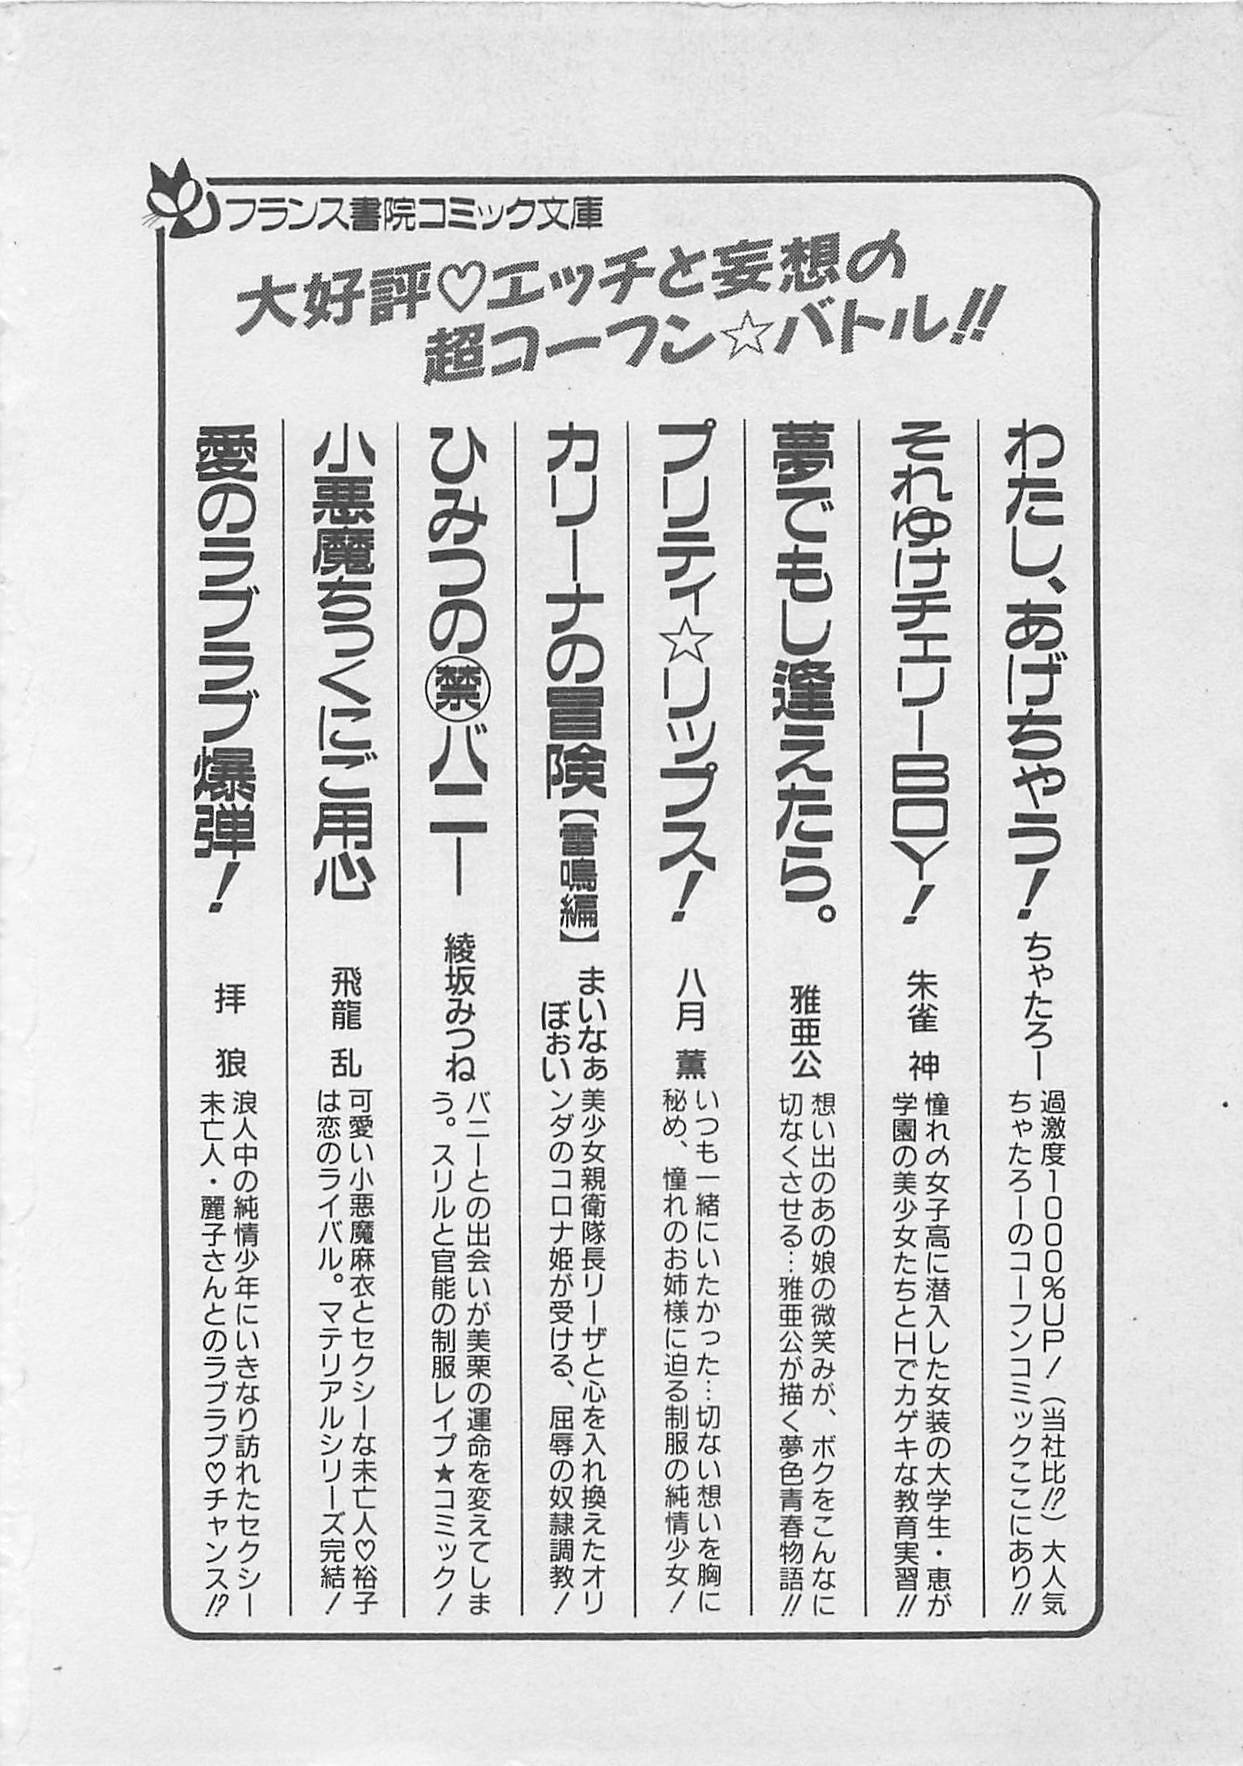 フランス書院コミック文庫
大好評♡エッチと妄想の
超コーフン☆バトル!!
わたし、あげちゃう!
ちゃたろー
過激度1000%UP!(当社比!?)大人気
ちゃたろーのコーフンコミックここにあり!!
それゆけチェリーBOY!
朱雀 神
憧れの女子高に潜入した女装の大学生・恵が
学園の美少女たちとHでカゲキな教育実習!!
夢でもし逢えたら。
雅亜公
想い出のあの娘の微笑みが、ボクをこんなに
切なくさせる…雅亜公が描く夢色青春物語!!
プリティ☆リップス!
八月 薫
いつも一緒にいたかった…切ない想いを胸に
秘め、憧れのお姉様に迫る制服の純情少女!
カリーナの冒険【雷鳴編】
まいなぁ
ぼぉい
美少女親衛隊長リーザと心を入れ換えたオリ
ンダのコロナ姫が受ける、屈辱の奴隷調教!
ひみつの㊙バニー
綾坂みつね
バニーとの出会いが美栗の運命を変えてしま
う。スリルと官能の制服レイプ★コミック!
小悪魔ちっくにご用心
飛龍 乱
可愛い小悪魔麻衣とセクシーな未亡人♡裕子
は恋のライバル。マテリアルシリーズ完結!
愛のラブラブ爆弾!
拝 狼
浪人中の純情少年にいきなり訪れたセクシー
未亡人・麗子さんとのラブラブ♡チャンス!?